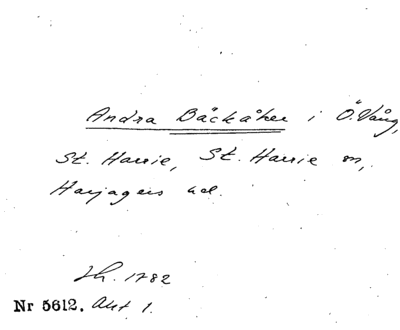 Andra Bäckåker i Ö. Vång,
St. Harrie, St. Harrie sn,
Harjagers hd.
Sh. 1782
Nr 5612. Akt 1.